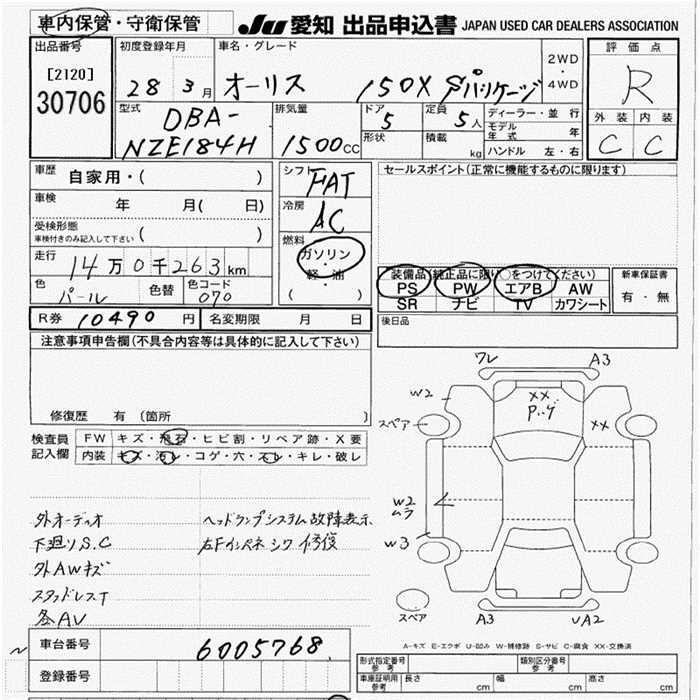 車内保管・守衛保管 JU 愛知 出品申込書 JAPAN USED CAR DEALERS ASSOCIATION
出品番号 [2120] 30706
初度登録年月 28年3月
車名・グレード オーリス 150X Sパッケージ
2WD・4WD
評価点 R
外装 内装
C C
型式 DBA-NZE184H
排気量 1500cc
ドア 5
形状
定員 5人
積載 kg
ディーラー・並行
モデル年式 年
ハンドル 左・右
車歴 自家用・( )
車検 年 月( 日)
受検形態 ( )
車検付きのみ記入して下さい
走行 14万0千263km
色 パール 色替 色コード 070
シフト FAT
冷房 AC
燃料 ガソリン・軽・油
( )
セールスポイント(正常に機能するものに限ります)
装備品(純正品に限り○をつけてください)
PS PW エアB AW
SR ナビ TV カワシート
新車保証書
有・無
R券 10490円 名変期限 月 日
後日品
注意事項申告欄(不具合内容等は具体的に記入して下さい)
修復歴 有 (箇所 )
検査員記入欄
FW キズ・飛石・ヒビ割・リペア跡・X要
内装 キズ・汚レ・コゲ・穴・スレ・キレ・破レ
外オーディオ
下廻りS.C
外AWキズ
スタッドレスT
各AV
ヘッドランプシステム故障表示
左Fインパネ シワ 修復
ワレ A3
W2 XX
スペア XX
W2
ムラ
W3
スペア A3 UA2
A-キズ E-エクボ U-凹み W-補修跡 S-サビ C-腐食 XX-交換済
車台番号 6005768
登録番号
形式指定番号
参考
類別区分番号
参考
車庫証明用
参考
長さ cm 幅 cm 高さ cm